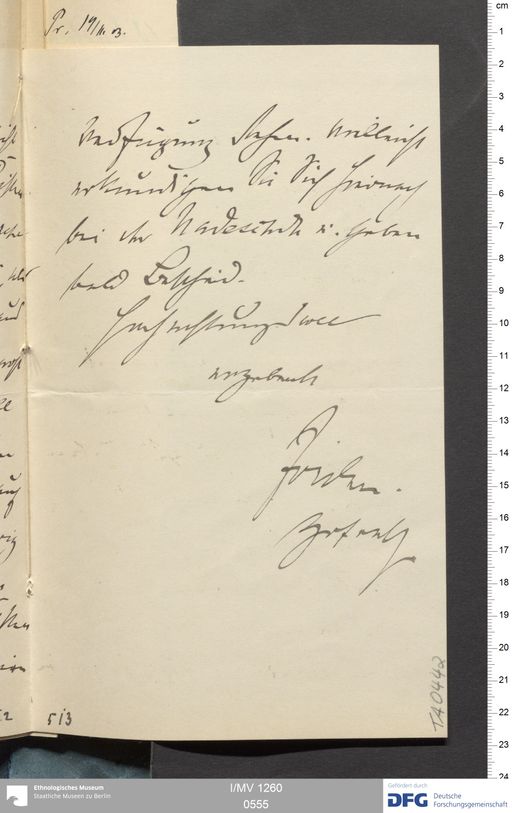 Pr. 19/III. 03.
Verfügung stehen. Vielleicht
erkundigen Sie Sich hiernach
bei der u. geben
bald Bescheid.
Hochachtungsvoll
ergebenst
513
TA0442
Ethnologisches Museum
Staatliche Museen zu Berlin
I/MV 1260
0555
Gefördert durch
DFG Deutsche
Forschungsgemeinschaft
cm
1
2
3
4
5
6
7
8
9
10
11
12
13
14
15
16
17
18
19
20
21
22
23
24